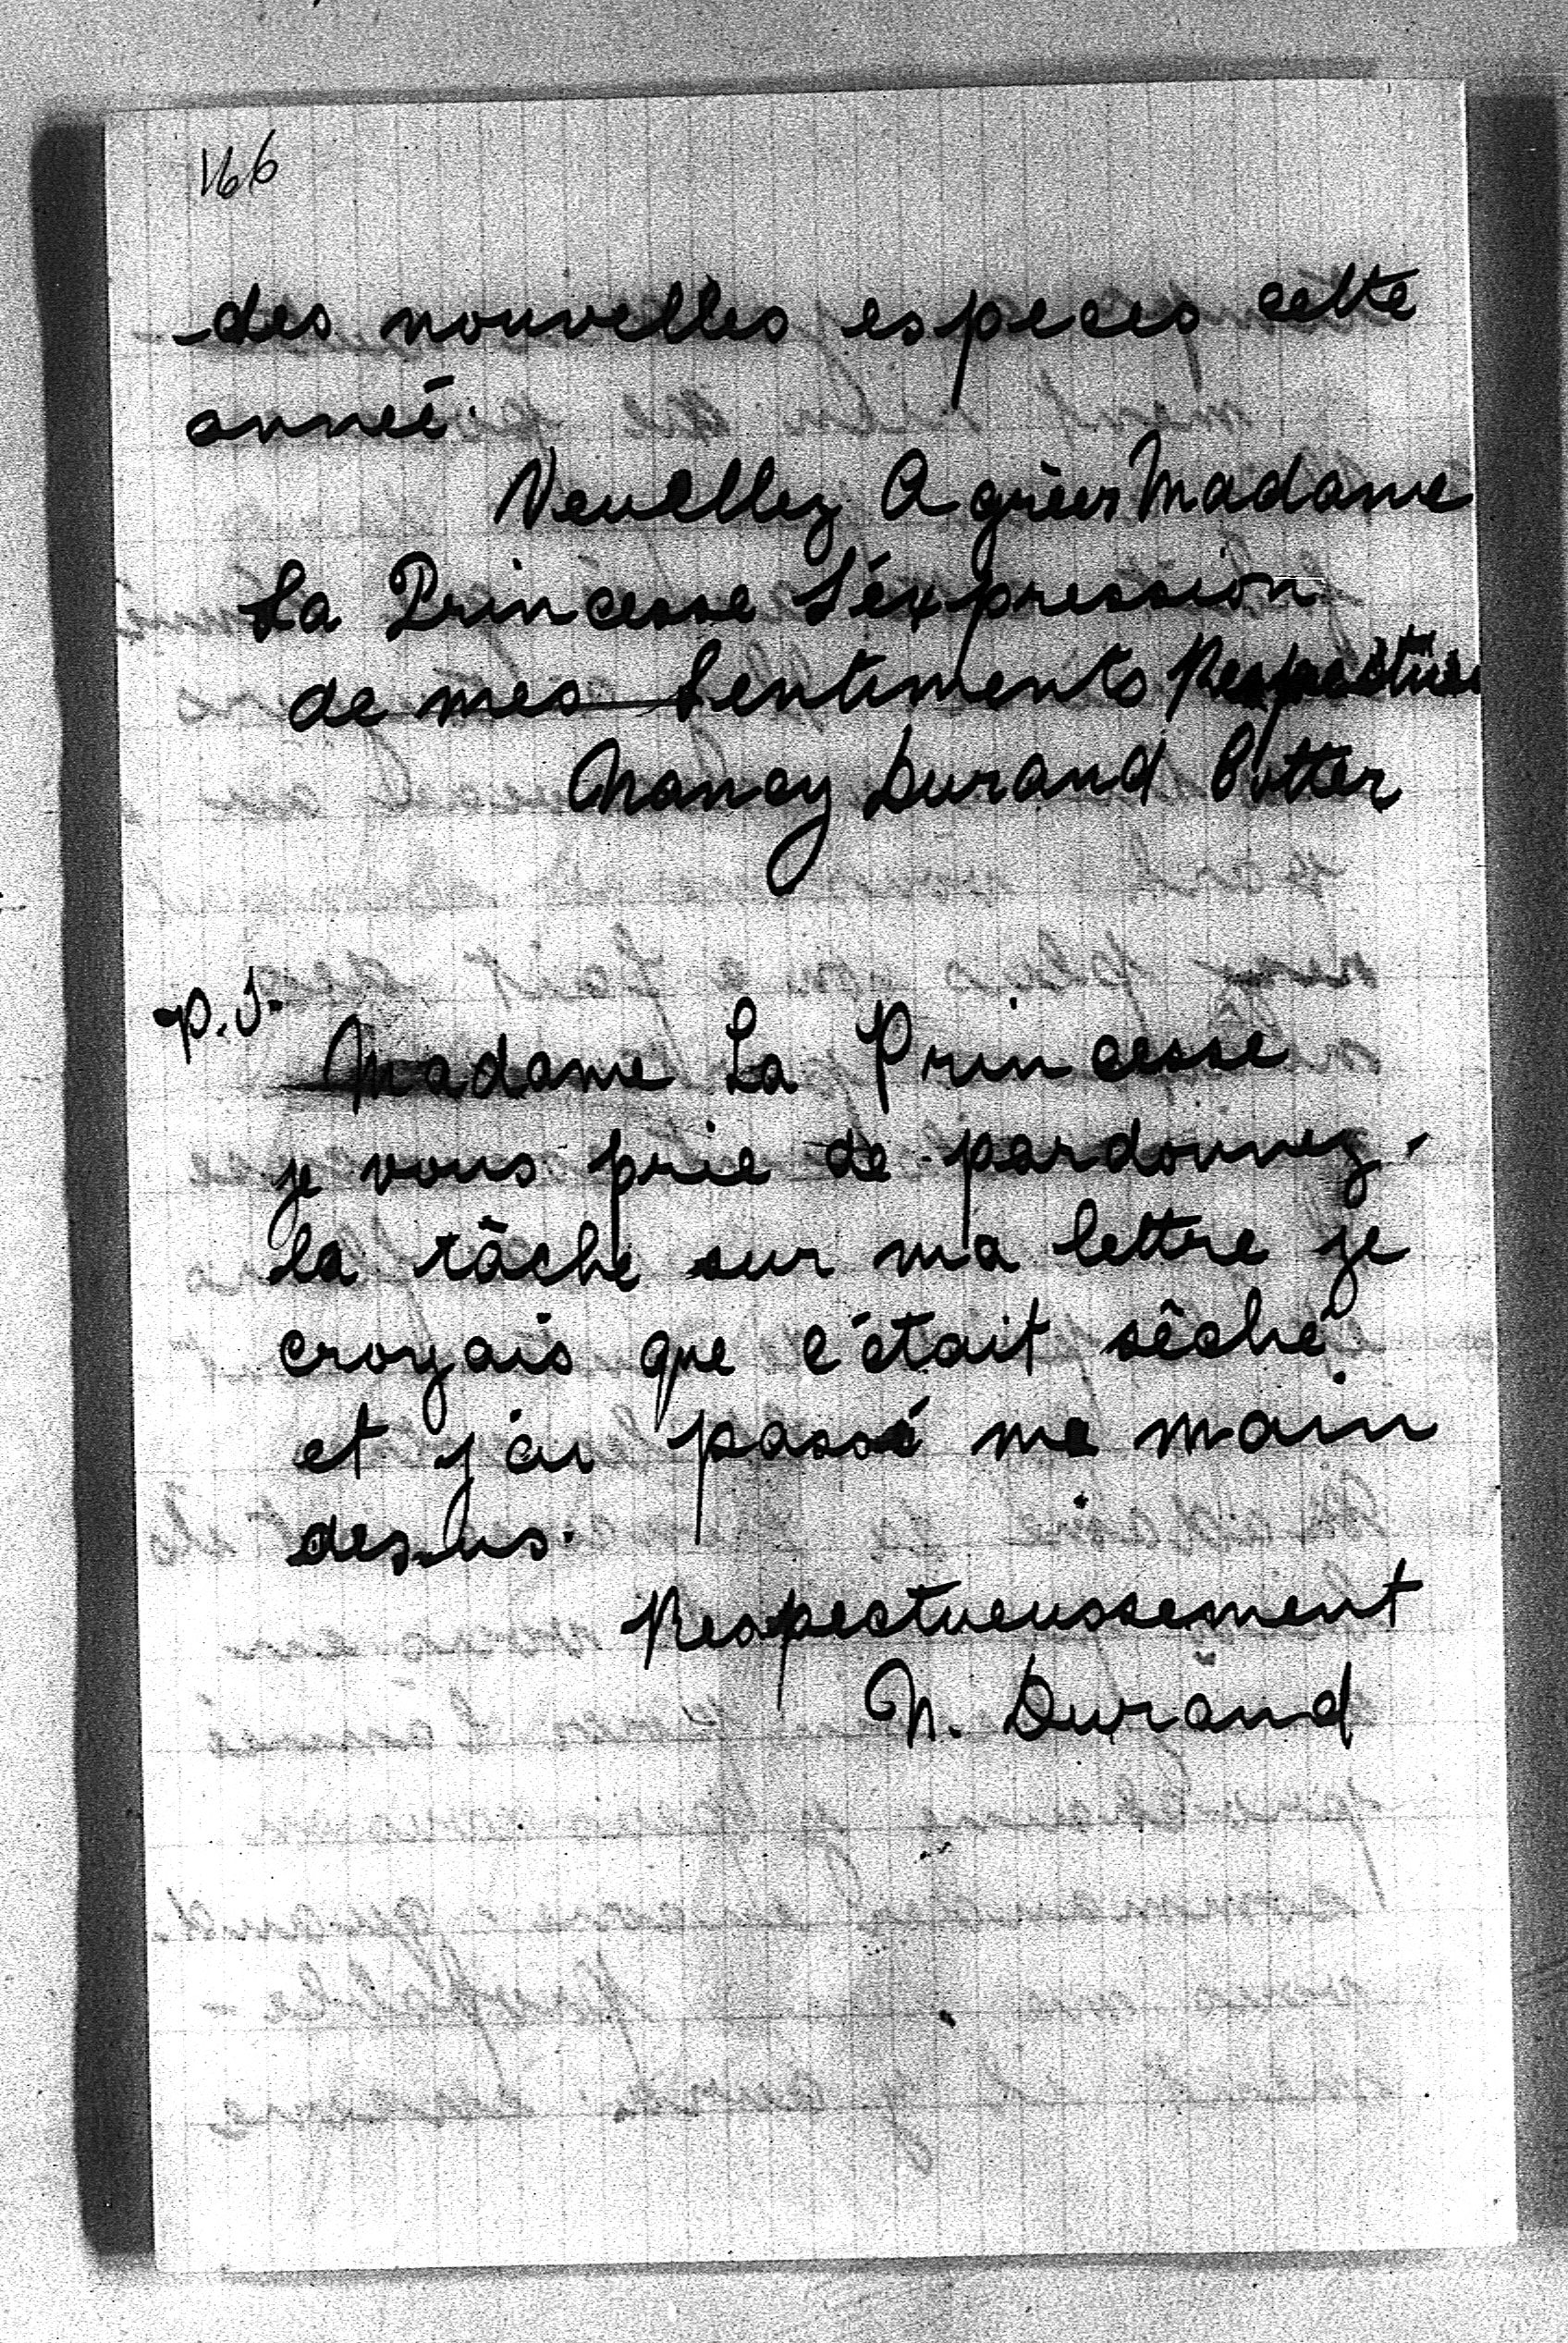 166
des nouvelles especes cette
anneé.
Veuillez Agrèer Madame
La Princesse L'éxpression
de mes Sentiments
Nancy Durand Potter
P.S.
Madame La Princesse
je vous prie de pardonnez
la tâche sur ma lettre je
croyais que c'était sêché
et j'ai passé ma main
dessus.
Respectueussement
N. Durand